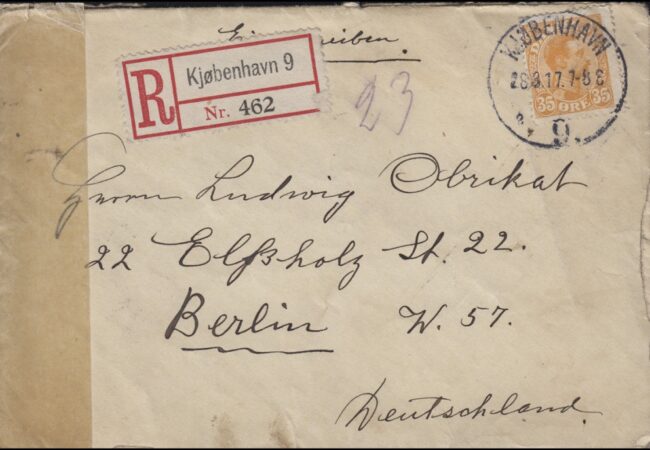 Einschreiben.
R Kjøbenhavn 9
Nr. 462
23
KJØBENHAVN
28.3.17. 7-8 E
9.
35 ØRE 35
Herrn Ludwig Obrikat
22 Elßholz St. 22.
Berlin W. 57.
Deutschland.